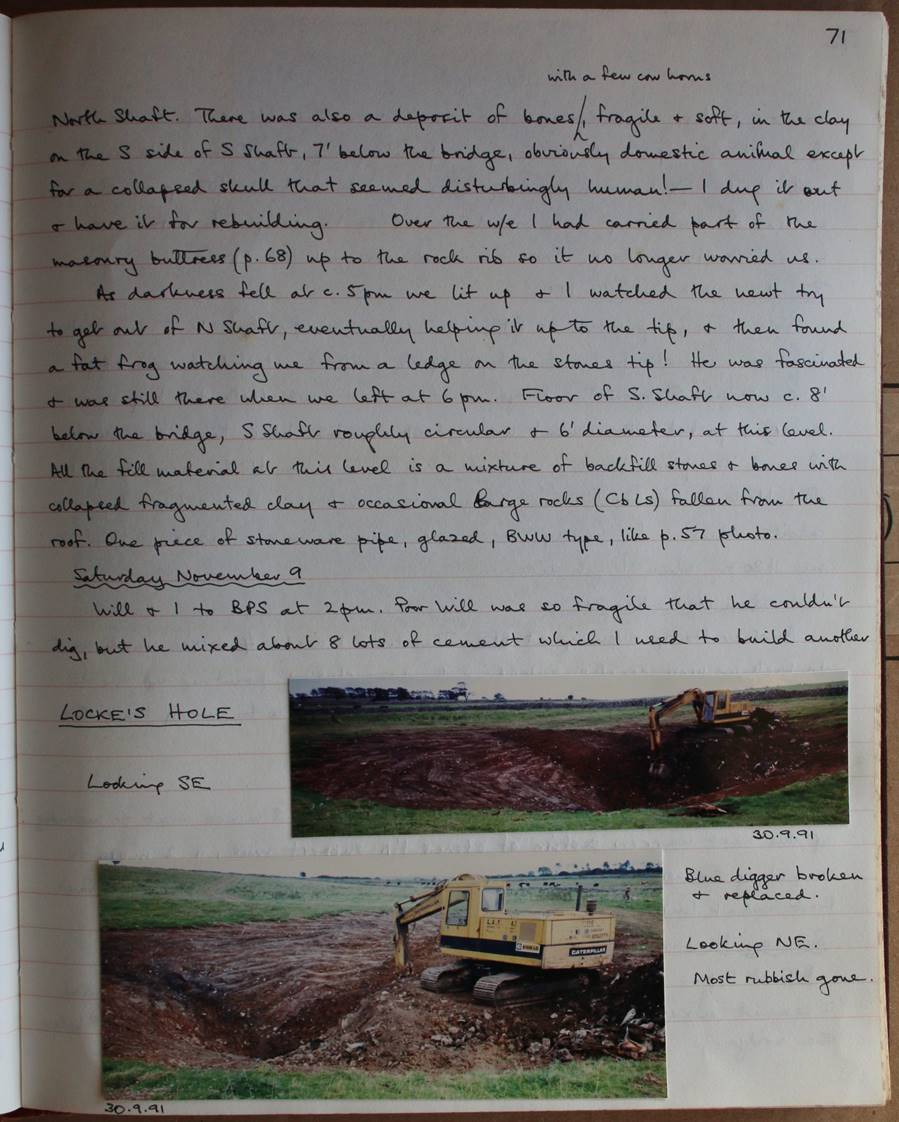 71
with a few cow horns
North Shaft. There was also a deposit of bones, fragile + soft, in the clay
on the S side of S Shaft, 7' below the bridge, obviously domestic animal except
for a collapsed skull that seemed disturbingly human! — I dug it out
+ have it for rebuilding. Over the w/e I had carried part of the
masonry buttress (p.68) up to the rock rib so it no longer worried us.
As darkness fell at c. 5pm we lit up + I watched the newt try
to get out of N Shaft, eventually helping it up to the tip, + then found
a fat frog watching me from a ledge on the stones tip! He was fascinated
+ was still there when we left at 6pm. Floor of S. Shaft now c. 8'
below the bridge, S Shaft roughly circular + 6' diameter, at this level.
All the fill material at this level is a mixture of backfill stones + bones with
collapsed fragmented clay + occasional large rocks (Cb Ls) fallen from the
roof. One piece of stoneware pipe, glazed, BWW type, like p.57 photo.
Saturday November 9
Will + I to BPS at 2pm. Poor Will was so fragile that he couldn't
dig, but he mixed about 8 lots of cement which I used to build another
LOCKE'S HOLE
Looking SE
30.9.91
Blue digger broken
+ replaced.
Looking NE.
Most rubbish gone.
CATERPILLAR
30.9.91